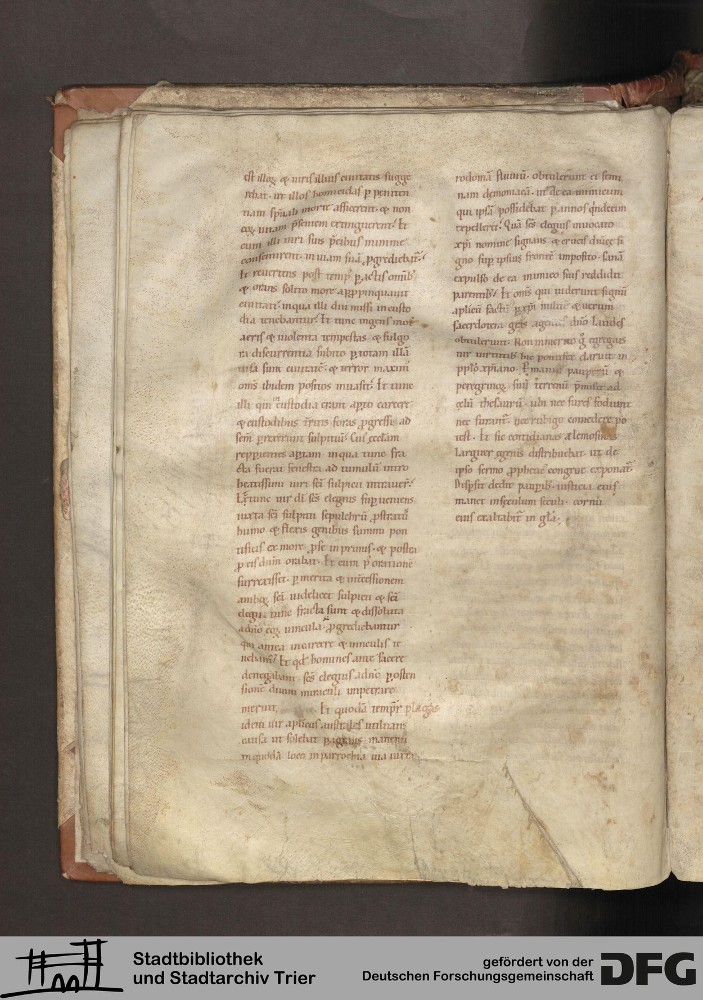 est illoꝝ & uiris illius ciuitatis sugge
rebat. ut illos homicidas ꝑ peniten
tiam sp̄uali morte afficerent. & non
eoꝝ uitam p̄sentem extinguerent. Et
cum illi uiri suis p̄cibus minime
consentirent. in uiam suā ꝓgrediebat᷑.
Et reuertens post temp᷒ ꝑactis om̄ib᷒
& orans solito more appropinquauit
ciuitati in qua illi diu missi in custo
dia tenebantur. Et tunc ingens mot᷒
aeris & uiolenta tempestas. & fulgo
ra discurrentia subito ꝑ totam illā
uisa sunt ciuitatē. & terror maxim᷒
om̄s ibidem positos inuasit. Et tunc
illi qui in custodia erant apto carcere
& custodibus territis foras ꝓgressi. ad
sc̄m ꝑrexerunt sulpitiū. Cui᷒ ecclam
reppientes aptam in qua tunc fra
cta fuerat fenestra ad tumulū intro
beatissimi uiri sc̄i sulpicii intrauer̄.
Et tunc uir dī sc̄s elegius suꝑueniens.
iuxta sc̄i sulpitii sepulchrū ꝓstratus
humo & flexis genibus summi pon
tificis ex more ꝓ se in primis. & postea
ꝓ eis dn̄m orabat. Et cum p᷒ orationē
surrexisset. ꝑ merita & int̄cessionem
amboꝝ sc̄i uidelicet sulpicii & sc̄i
elegii tunc fracta sunt & dissoluta
a dn̄o eoꝝ uincula. ꝓgrediebantur
qui antea in carcere & uinculis te
nebant᷑. Et qd̄ homines ante facere
denegabant. sc̄s elegius a dn̄o ꝑ osten
sionē diuini miraculi impetrare
meruit. Et quodā tempr̄ plagas
idem uir aplicus australes utilitatis
causa ut solebat paganis manenti
in quodā loco in parrochia uia iuxta
rodomā fluuiū. obtulerunt ei femi
nam demoniacā. ut de ea inimicum
qui ipsā possidebat ꝑ annos quīdecim
expelleret. Quā sc̄s elegius inuocato
xp̄i nomine signans & crucis diuīe si
gno suꝑ ipsius frontē imposito. sanā
expulso de ea inimico suis reddidit
parentib᷒. Et om̄s qui uiderunt signū
aplicū factū ꝑ xp̄i militē & uerum
sacerdotem gr̄as agentes dn̄o laudes
obtulerunt. Non immerito g᷒ egregius
uir uirtutib᷒ hic pontifex claruit in
pplō xp̄iano. Et manus paupeꝝ &
peregrinoꝝ. suū terrenū p̄misit ad
celū thesaurū. ubi nec fures fodiunt
nec furant᷑. nec erubigo comedere po
test. Et sic cotidianas ælemosinas
larguter egenis distribuebat. ut de
ipso sermo ꝓphetie congrue exponat᷑.
Dispersit dedit pauꝑib᷒. iusticia eius
manet in seculum seculi. cornu
eius exaltabit᷑ in gl̄a.
Stadtbibliothek
und Stadtarchiv Trier
gefördert von der
Deutschen Forschungsgemeinschaft
DFG